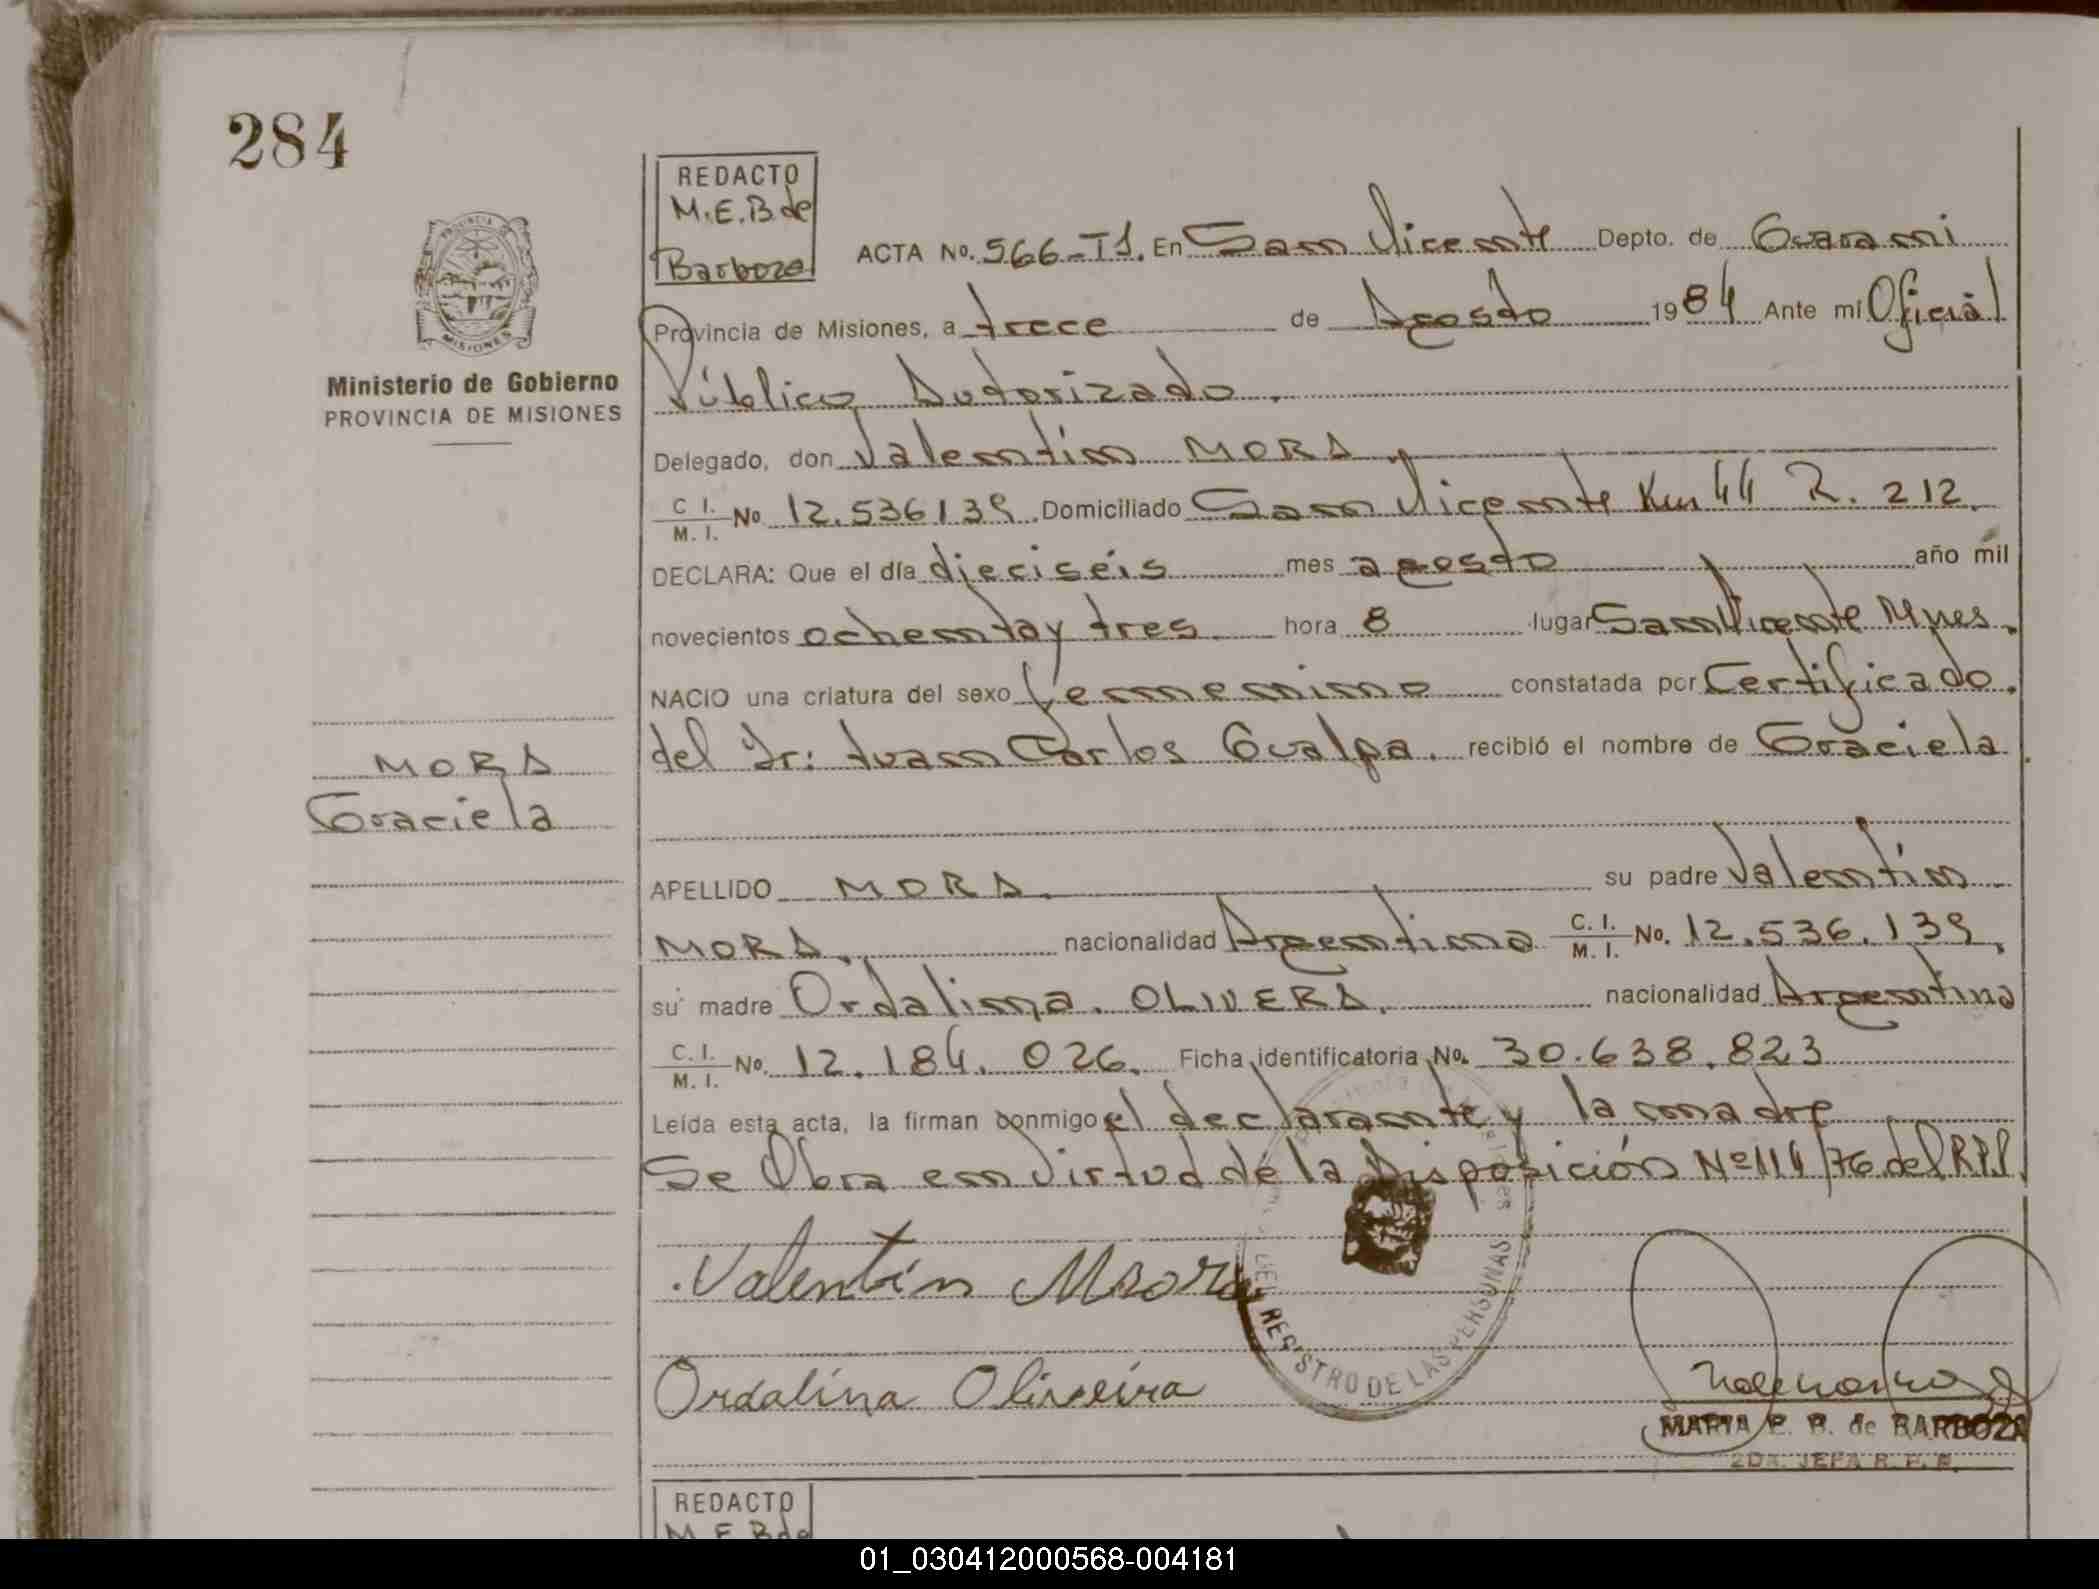 284
REDACTO
M.E.B. de
Barboza
ACTA No. 566-T1. En San Vicente Depto. de Guarani
Provincia de Misiones, a trece de Agosto 1984 Ante mi Oficial
Público Autorizado.
Delegado, don Valentín MORA.
C. I. / M. I. No 12.536139. Domiciliado San Vicente Km 44 R. 212.
DECLARA: Que el día dieciséis mes agosto año mil
novecientos ochenta y tres. hora 8 lugar San Vicente Mnes.
NACIO una criatura del sexo femenino constatada por Certificado.
del Dr: Juan Carlos Gualpa. recibió el nombre de Graciela
APELLIDO MORA. su padre Valentín
MORA. nacionalidad Argentina C. I. / M. I. No. 12.536.139.
su madre Ordalina. OLIVERA. nacionalidad Argentina
C. I. / M. I. No. 12.184.026. Ficha identificatoria No. 30.638.823
Leída esta acta, la firman conmigo el declarante y la madre
Se Obra en virtud de la Disposición Nº 114/76 del R.P.P.
Valentín Mora
Ordalina Oliveira
REGISTRO DE LAS PERSONAS
MARIA E. B. de BARBOZA
2DA. JEFA R. P. P.
PROVINCIA DE
MISIONES
Ministerio de Gobierno
PROVINCIA DE MISIONES
MORA
Graciela
REDACTO
M.E.B de
01_030412000568-004181